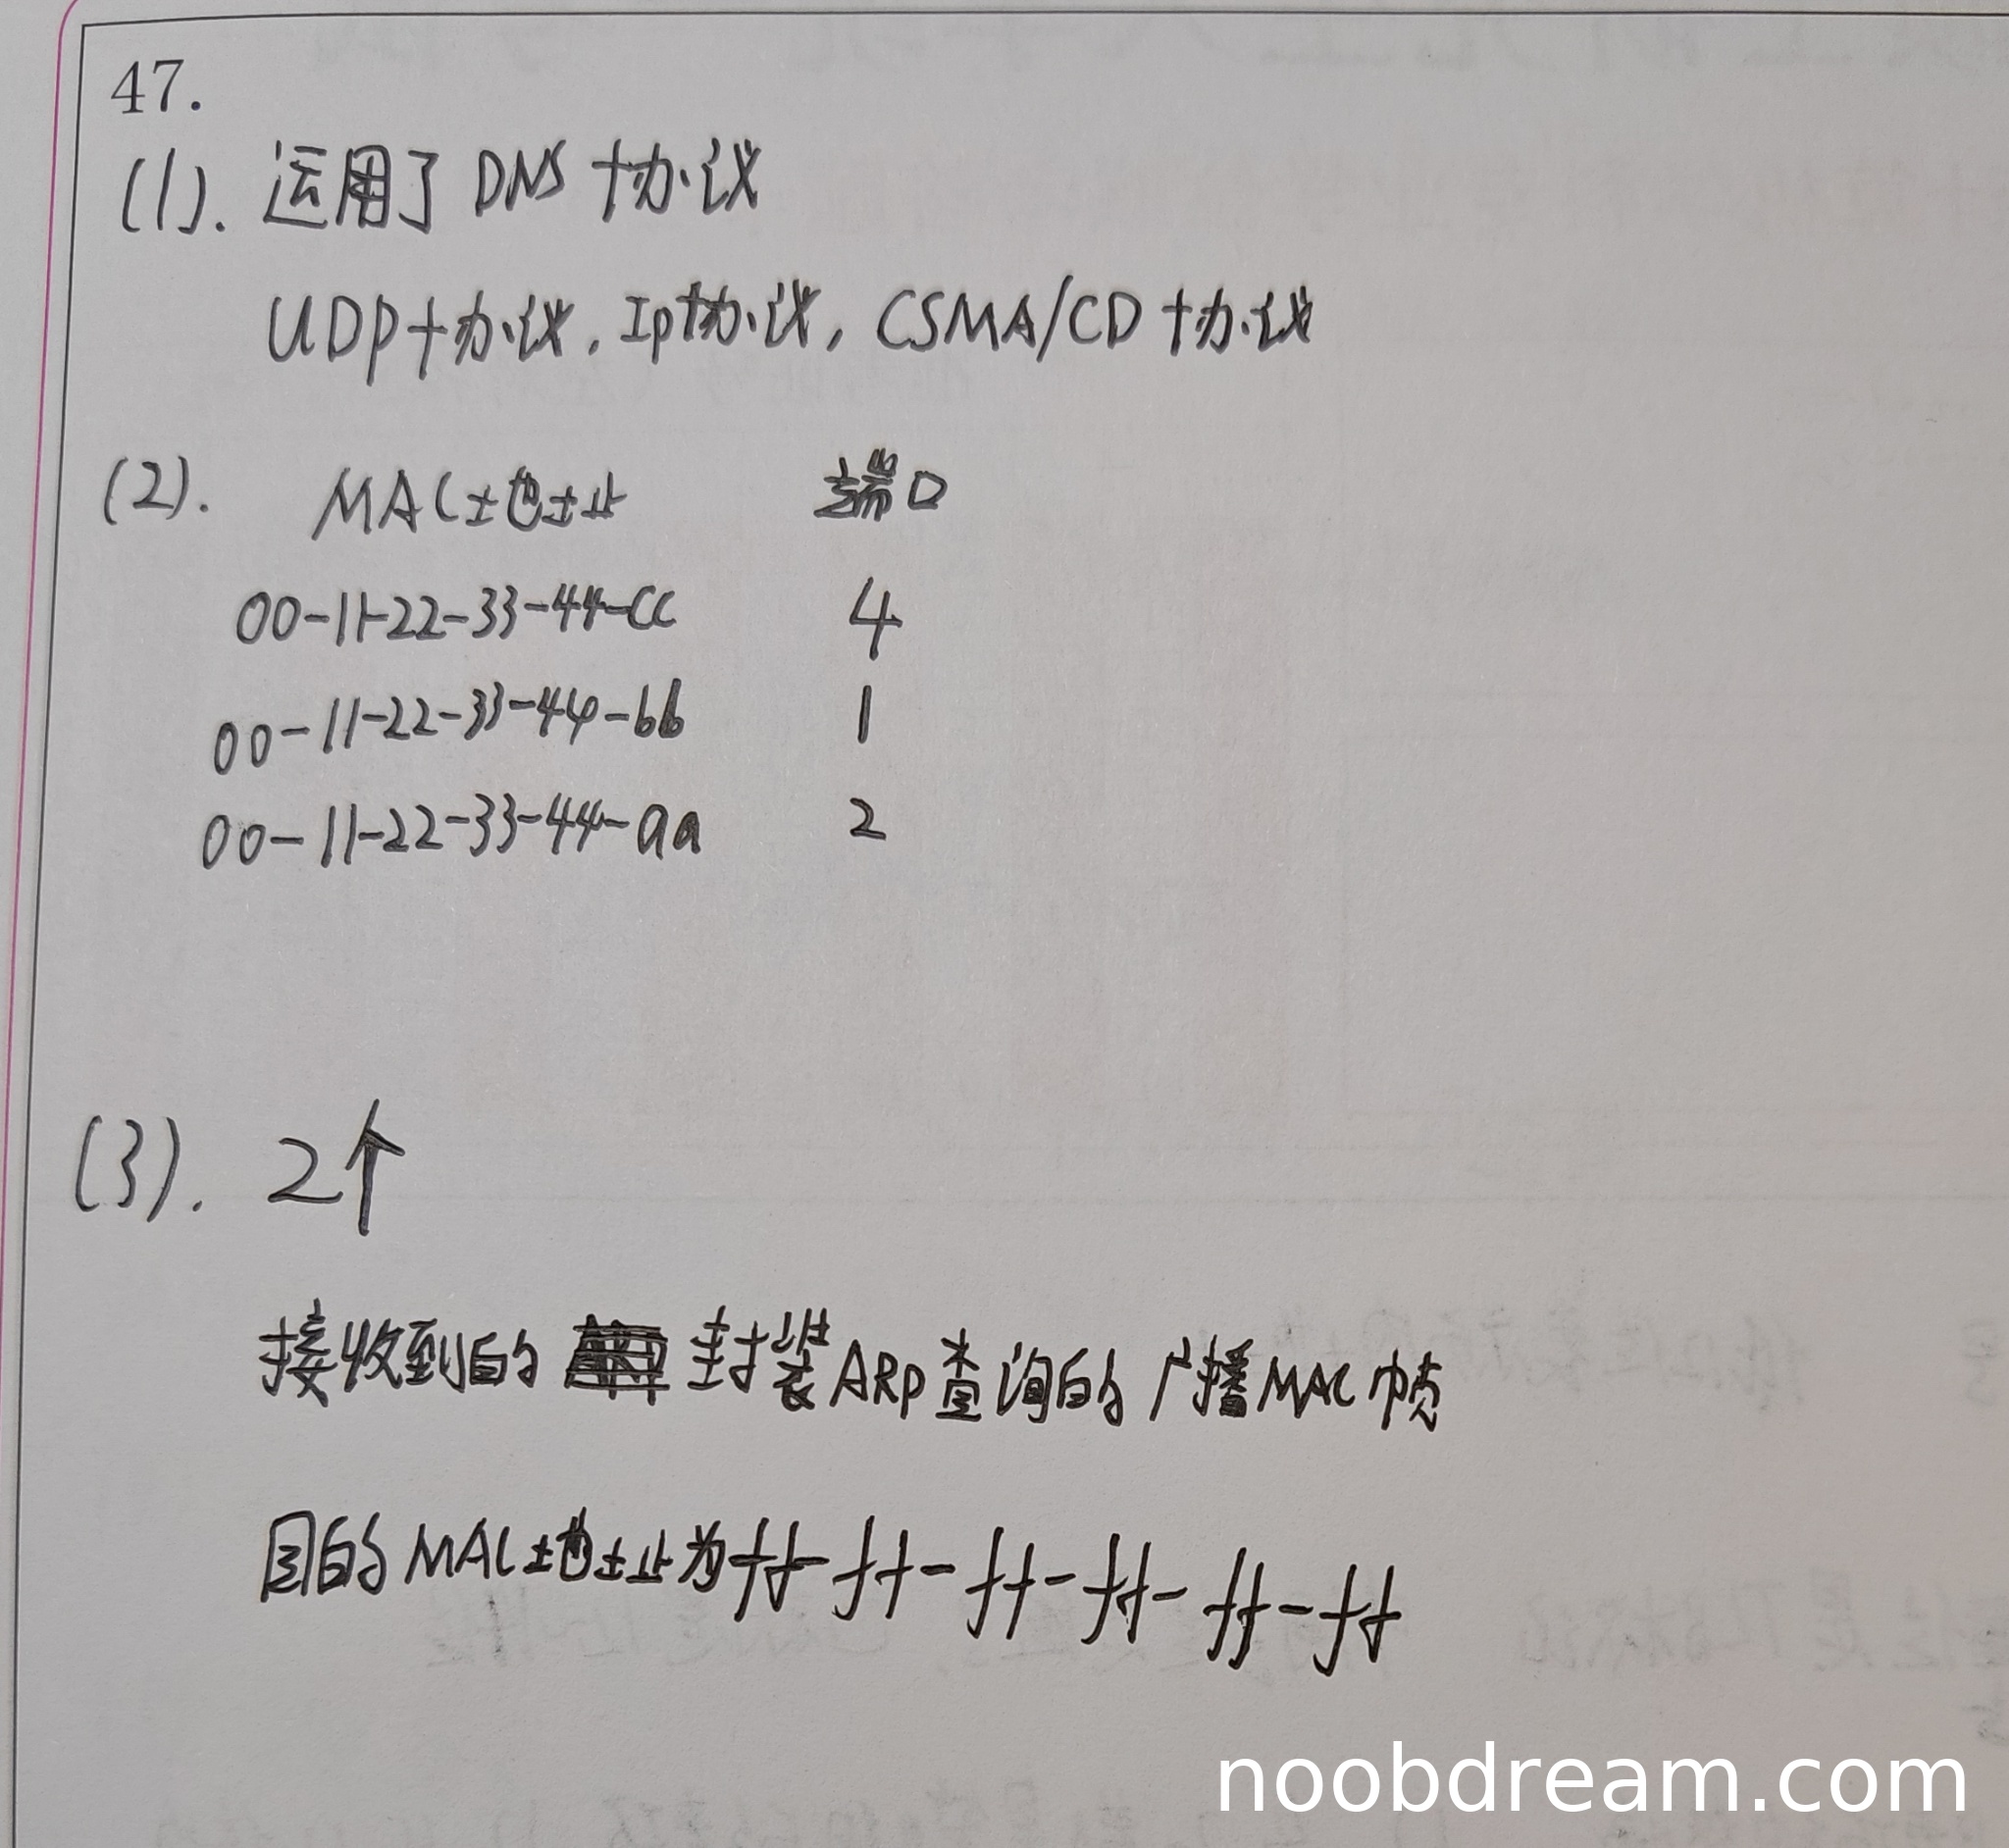 47.
(1). 运用了 DNS 协议
UDP协议, Ip协议, CSMA/CD 协议
(2). MAC地址 端口
00-11-22-33-44-cc 4
00-11-22-33-44-bb 1
00-11-22-33-44-aa 2
(3). 2个
接收到的 封装ARP查询的广播MAC帧
目的MAC地址为ff-ff-ff-ff-ff-ff
noobdream.com